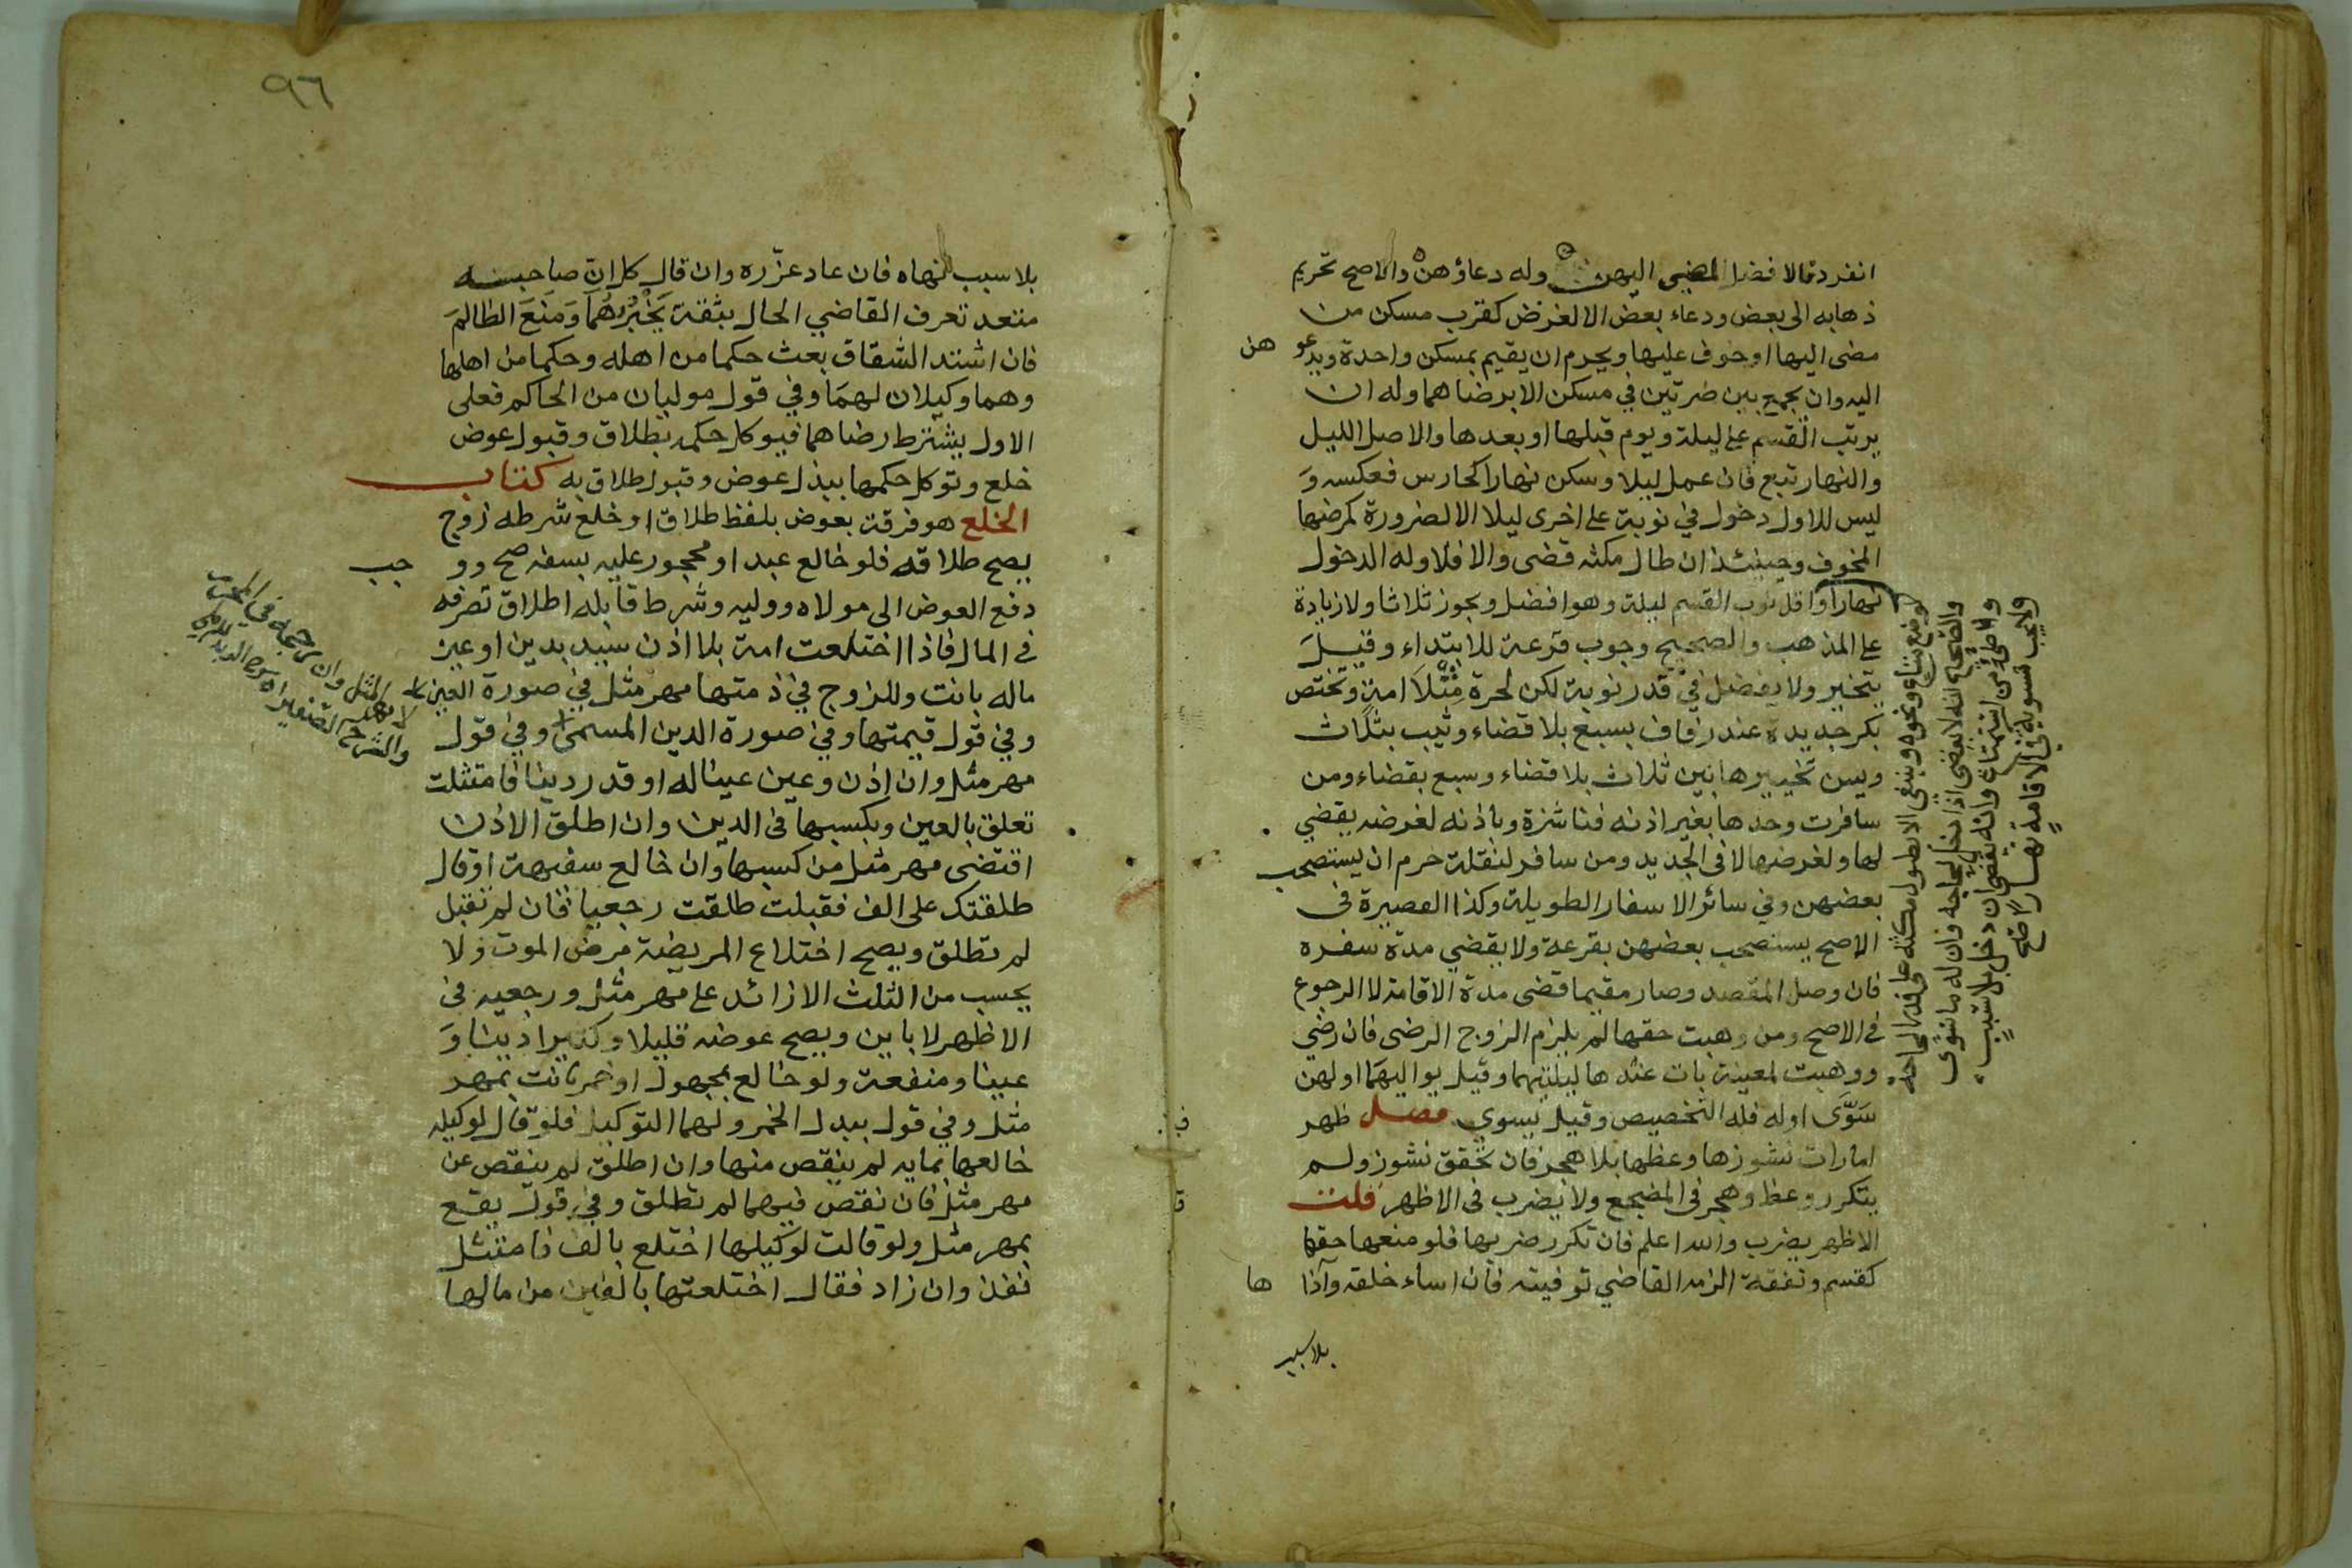 انفرد فالافضل المضي اليهن وله دعاؤهن والاصح تحريم
ذهابه الى بعض ودعاء بعض الا لغرض كقرب مسكن من
مضى اليها او خوف عليها ويحرم ان يقيم بمسكن واحدة ويدعو
هن
اليه وان يجمع بين ضرتين في مسكن الا برضاهما وله ان
يرتب القسم على ليلة ويوم قبلها او بعدها والاصل الليل
والنهار تبع فان عمل ليلا وسكن نهارا كحارس فعكسه و
ليس للاول دخول في نوبة على اخرى ليلا الا لضرورة كمرضها
المخوف وحينئذ ان طال مكثه قضى والا فلا وله الدخول
نهارا واقل نوب القسم ليلة وهو افضل ويجوز ثلاثا ولا زيادة
على المذهب والصحيح وجوب قرعة للابتداء وقيل
يتخير ولا يفضل في قدر نوبة لكن لحرة مثلا امة وتختص
بكر جديدة عند زفاف بسبع بلا قضاء وثيب بثلاث
ويسن تخييرها بين ثلاث بلا قضاء وسبع بقضاء ومن
سافرت وحدها بغير اذنه فناشزة وباذنه لغرضه يقضي
لها ولغرضها لا في الجديد ومن سافر لنقلة حرم ان يستصحب
بعضهن وفي سائر الاسفار الطويلة وكذا القصيرة في
الاصح يستصحب بعضهن بقرعة ولا يقضي مدة سفره
فان وصل المقصد وصار مقيما قضى مدة الاقامة لا الرجوع
في الاصح ومن وهبت حقها لم يلزم الزوج الرضى فان رضي
ووهبت لمعينة بات عندها ليلتيهما وقيل يواليهما او لهن
سوى او له فله التخصيص وقيل يسوي فصل ظهر
امارات نشوزها وعظها بلا هجر فان تحقق نشوز ولم
يتكرر وعظ وهجر في المضجع ولا يضرب في الاظهر قلت
الاظهر يضرب والله اعلم فان تكرر ضربها فلو منعها حقها
كقسم ونفقة الزمه القاضي توفيته فان اساء خلقه وآذا
ها
بلا سبب
لوضع متاع ونحوه وينبغي الا يطول مكثه على قدر الحاجة
والصحيح انه لا يقضي اذا دخل لحاجة وان له ما سوى
وطئ من استمتاع وانه يقضي ان دخل بلا سبب
ولا يجب تسوية في الاقامة نهارا صح
٩٦
بلا سبب نهاه فان عاد عزره وان قال كل ان صاحبه
متعد تعرف القاضي الحال بثقة يخبرهما ومنع الظالم
فان اشتد الشقاق بعث حكما من اهله وحكما من اهلها
وهما وكيلان لهما وفي قول موليان من الحاكم فعلى
الاول يشترط رضاهما فيوكل حكمه بطلاق وقبول عوض
خلع وتوكل حكمها ببذل عوض وقبول طلاق به كتاب
الخلع هو فرقة بعوض بلفظ طلاق او خلع شرطه زوج
يصح طلاقه فلو خالع عبد او محجور عليه بسفه صح وو
جب
دفع العوض الى مولاه ووليه وشرط قابله اطلاق تصرفه
في المال فاذا اختلعت امة بلا اذن سيد بدين او عين
ماله بانت وللزوج في ذمتها مهر مثل في صورة العين
وفي قول قيمتها وفي صورة الدين المسمى وفي قول
مهر مثل وان اذن وعين عينا له او قدر دينا فامتثلت
تعلق بالعين وبكسبها في الدين وان اطلق الاذن
اقتضى مهر مثل من كسبها وان خالع سفيهة او قال
طلقتك على الف فقبلت طلقت رجعيا فان لم تقبل
لم تطلق ويصح اختلاع المريضة مرض الموت ولا
يحسب من الثلث الا زائد على مهر مثل ورجعيه في
الاظهر لا باين ويصح عوضه قليلا وكثيرا دينا و
عينا ومنفعة ولو خالع بمجهول او خمر بانت بمهر
مثل وفي قول ببدل الخمر ولهما التوكيل فلو قال لوكيله
خالعها بمايه لم ينقص منها وان اطلق لم ينقص عن
مهر مثل فان نقص فيهما لم تطلق وفي قول يقع
بمهر مثل ولو قالت لوكيلها اختلع بالف فامتثل
نفذ وان زاد فقال اختلعتها بالفين من مالها